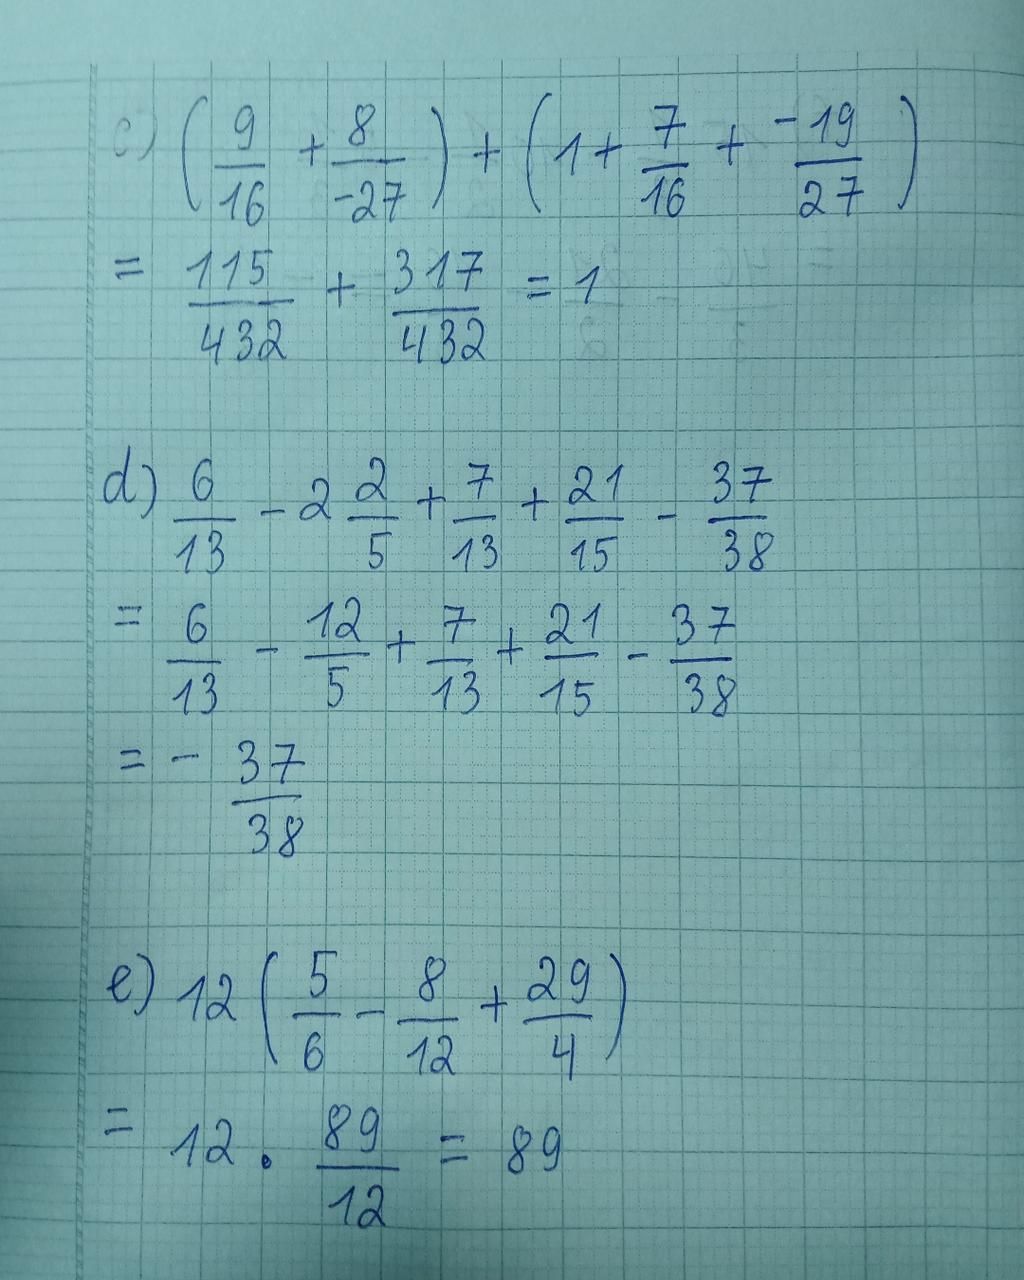 c) (9/16 + 8/-27) + (1 + 7/16 + -19/27)
= 115/432 + 317/432 = 1
d) 6/13 - 2 2/5 + 7/13 + 21/15 - 37/38
= 6/13 - 12/5 + 7/13 + 21/15 - 37/38
= - 37/38
e) 12 (5/6 - 8/12 + 29/4)
= 12 . 89/12 = 89